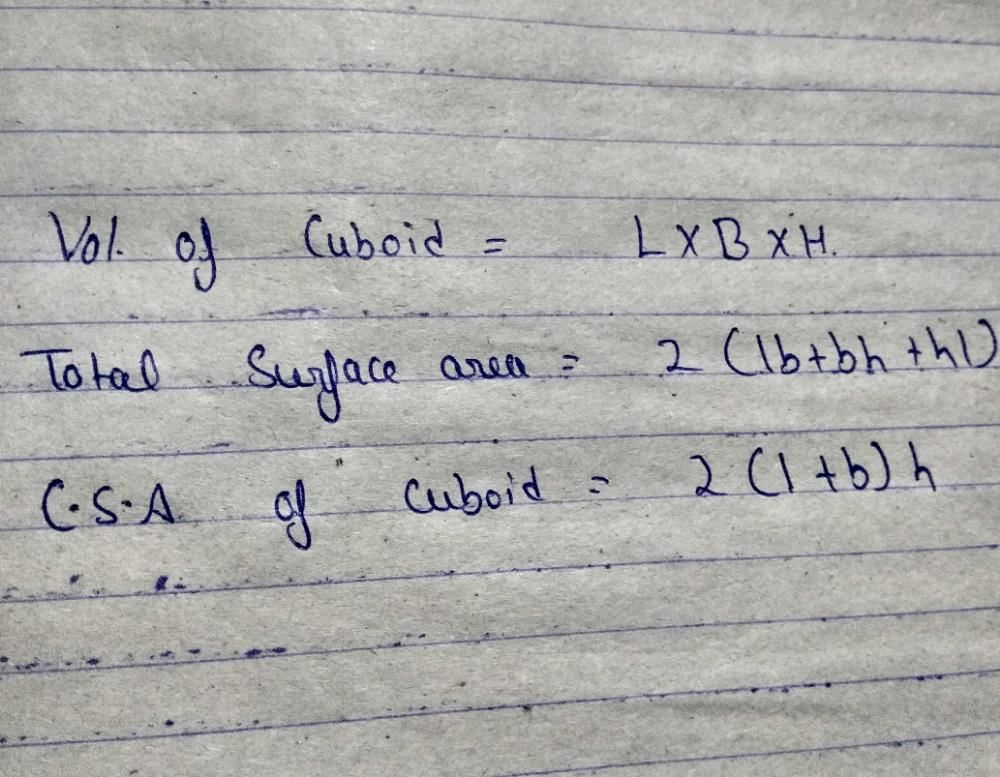 Vol. of Cuboid = L X B X H.
Total Surface area = 2 (lb+bh +hl)
C.S.A. of Cuboid = 2 (l +b) h